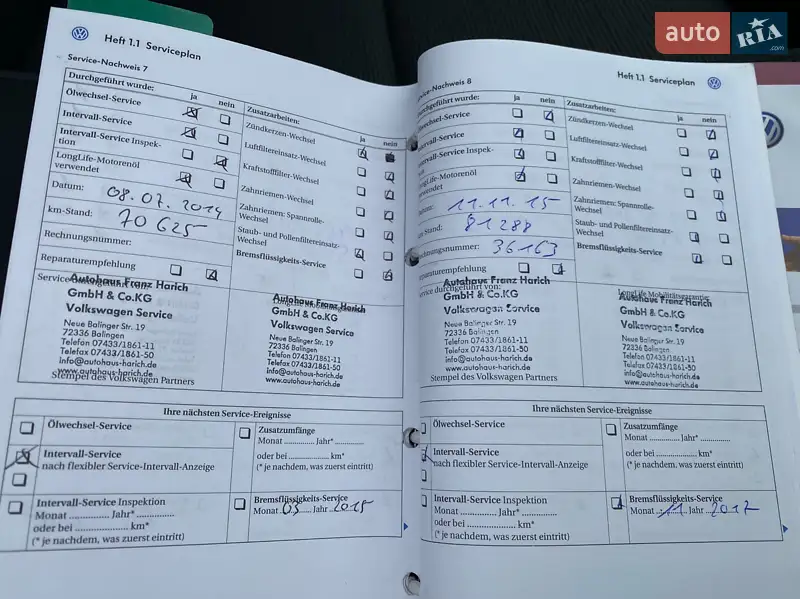 auto RIA
Heft 1.1 Serviceplan
Service-Nachweis 7
Durchgeführt wurde: ja nein
Ölwechsel-Service
Intervall-Service
Intervall-Service Inspek-
tion
LongLife-Motorenöl
verwendet
Datum: 08.07.2014
km-Stand: 70625
Rechnungsnummer:
Reparaturempfehlung
Zusatzarbeiten: ja nein
Zündkerzen-Wechsel
Luftfiltereinsatz-Wechsel
Kraftstofffilter-Wechsel
Zahnriemen-Wechsel
Zahnriemen: Spannrolle-
Wechsel
Staub- und Pollenfiltereinsatz-
Wechsel
Bremsflüssigkeits-Service
Autohaus Franz Harich
GmbH & Co.KG
Volkswagen Service
Neue Balinger Str. 19
72336 Balingen
Telefon 07433/1861-11
Telefax 07433/1861-50
info@autohaus-harich.de
www.autohaus-harich.de
Stempel des Volkswagen Partners
Autohaus Franz Harich
GmbH & Co.KG
Volkswagen Service
Neue Balinger Str. 19
72336 Balingen
Telefon 07433/1861-11
Telefax 07433/1861-50
info@autohaus-harich.de
www.autohaus-harich.de
Ihre nächsten Service-Ereignisse
Ölwechsel-Service
Intervall-Service
nach flexibler Service-Intervall-Anzeige
Intervall-Service Inspektion
Monat Jahr*
oder bei km*
(* je nachdem, was zuerst eintritt)
Zusatzumfänge
Monat Jahr*
oder bei km*
(* je nachdem, was zuerst eintritt)
Bremsflüssigkeits-Service
Monat 03 Jahr 2015
Heft 1.1 Serviceplan
Service-Nachweis 8
Durchgeführt wurde: ja nein
Ölwechsel-Service
Intervall-Service
Intervall-Service Inspek-
LongLife-Motorenöl
verwendet
11.11.15
Stand: 81288
Rechnungsnummer: 36163
Reparaturempfehlung
Service durchgeführt von:
Zusatzarbeiten: ja nein
Zündkerzen-Wechsel
Luftfiltereinsatz-Wechsel
Kraftstofffilter-Wechsel
Zahnriemen-Wechsel
Zahnriemen: Spannrolle-
Wechsel
Staub- und Pollenfiltereinsatz-
Wechsel
Bremsflüssigkeits-Service
LongLife Mobilitätsgarantie
Autohaus Franz Harich
GmbH & Co.KG
Volkswagen Service
Neue Balinger Str. 19
72336 Balingen
Telefon 07433/1861-11
Telefax 07433/1861-50
info@autohaus-harich.de
www.autohaus-harich.de
Stempel des Volkswagen Partners
Autohaus Franz Harich
GmbH & Co.KG
Volkswagen Service
Neue Balinger Str. 19
72336 Balingen
Telefon 07433/1861-11
Telefax 07433/1861-50
info@autohaus-harich.de
www.autohaus-harich.de
Ihre nächsten Service-Ereignisse
Ölwechsel-Service
Intervall-Service
nach flexibler Service-Intervall-Anzeige
Intervall-Service Inspektion
Monat Jahr*
oder bei km*
(* je nachdem, was zuerst eintritt)
Zusatzumfänge
Monat Jahr*
oder bei km*
(* je nachdem, was zuerst eintritt)
Bremsflüssigkeits-Service
Monat 11 Jahr 2017